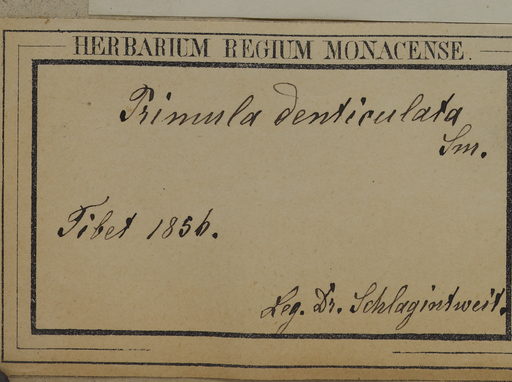 HERBARIUM REGIUM MONACENSE.
Primula denticulata
Sm.
Tibet 1856.
Leg. Dr. Schlagintweit.